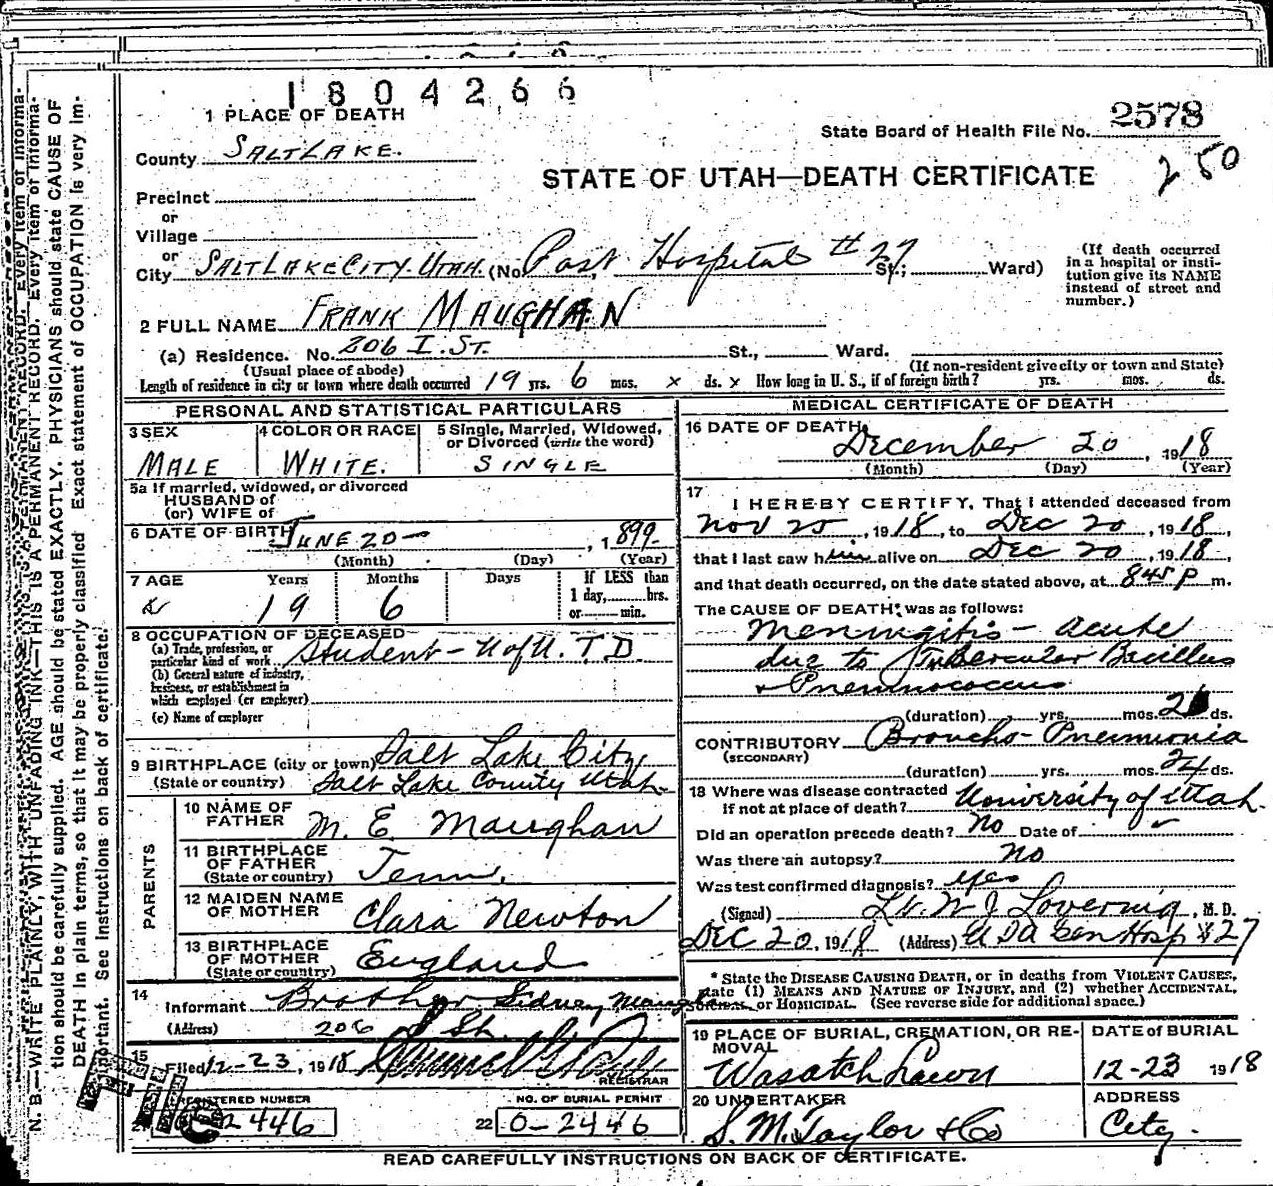 1804266
1 PLACE OF DEATH
State Board of Health File No. 2578
County SALT LAKE.
250
STATE OF UTAH—DEATH CERTIFICATE
Precinct
or
Village
or
City SALT LAKE CITY. UTAH. (No. Post Hospital # 27 St; Ward)
(If death occurred in a hospital or institution give its NAME instead of street and number.)
2 FULL NAME FRANK MAUGHAN
(a) Residence. No. 206 I. ST. St., Ward.
(Usual place of abode) (If non-resident give city or town and State)
Length of residence in city or town where death occurred 19 yrs. 6 mos. x ds. x How long in U. S., if of foreign birth? yrs. mos. ds.
PERSONAL AND STATISTICAL PARTICULARS
3 SEX MALE
4 COLOR OR RACE WHITE.
5 Single, Married, Widowed, or Divorced (write the word) SINGLE
5a If married, widowed, or divorced
HUSBAND of
(or) WIFE of
6 DATE OF BIRTH JUNE 20 — , 1899.
(Month) (Day) (Year)
7 AGE Years 19 Months 6 Days If LESS than 1 day, hrs. or min.
8 OCCUPATION OF DECEASED
(a) Trade, profession, or particular kind of work Student — U of U. T.D.
(b) General nature of industry, business, or establishment in which employed (or employer)
(c) Name of employer
9 BIRTHPLACE (city or town) Salt Lake City,
(State or country) Salt Lake County Utah.
PARENTS
10 NAME OF FATHER M. E. Maughan
11 BIRTHPLACE OF FATHER (State or country) Tenn.
12 MAIDEN NAME OF MOTHER Clara Newton
13 BIRTHPLACE OF MOTHER (State or country) England
14 Informant Brother Sidney Maughan
(Address) 206 I St.
15 Filed 12-23, 1918
REGISTRAR
REGISTERED NUMBER
2446
NO. OF BURIAL PERMIT
22 0-2446
MEDICAL CERTIFICATE OF DEATH
16 DATE OF DEATH December 20, 1918
(Month) (Day) (Year)
17 I HEREBY CERTIFY, That I attended deceased from
Nov 25, 1918, to Dec 20, 1918,
that I last saw him alive on Dec 20, 1918,
and that death occurred, on the date stated above, at 845 P m.
The CAUSE OF DEATH* was as follows:
Meningitis — acute
due to Tubercular Bacillus
+ Pneumococcus
(duration) yrs. mos. ds.
CONTRIBUTORY Broncho-Pneumonia
(SECONDARY)
(duration) yrs. mos. 24 ds.
18 Where was disease contracted if not at place of death? University of Utah.
Did an operation precede death? No Date of
Was there an autopsy? no
Was test confirmed diagnosis? yes
(Signed) Lt. W J Lovering, M. D.
DEC 20, 1918 (Address) U S A Gen Hosp #27
* State the DISEASE CAUSING DEATH, or in deaths from VIOLENT CAUSES, state (1) MEANS AND NATURE OF INJURY, and (2) whether ACCIDENTAL, SUICIDAL, or HOMICIDAL. (See reverse side for additional space.)
19 PLACE OF BURIAL, CREMATION, OR REMOVAL Wasatch Lawn
DATE of BURIAL 12-23 1918
20 UNDERTAKER S. M. Taylor & Co
ADDRESS City.
READ CAREFULLY INSTRUCTIONS ON BACK OF CERTIFICATE.
N. B.—WRITE PLAINLY, WITH UNFADING INK—THIS IS A PERMANENT RECORD. Every item of information should be carefully supplied. AGE should be stated EXACTLY. PHYSICIANS should state CAUSE OF DEATH in plain terms, so that it may be properly classified. Exact statement of OCCUPATION is very important. See instructions on back of certificate.